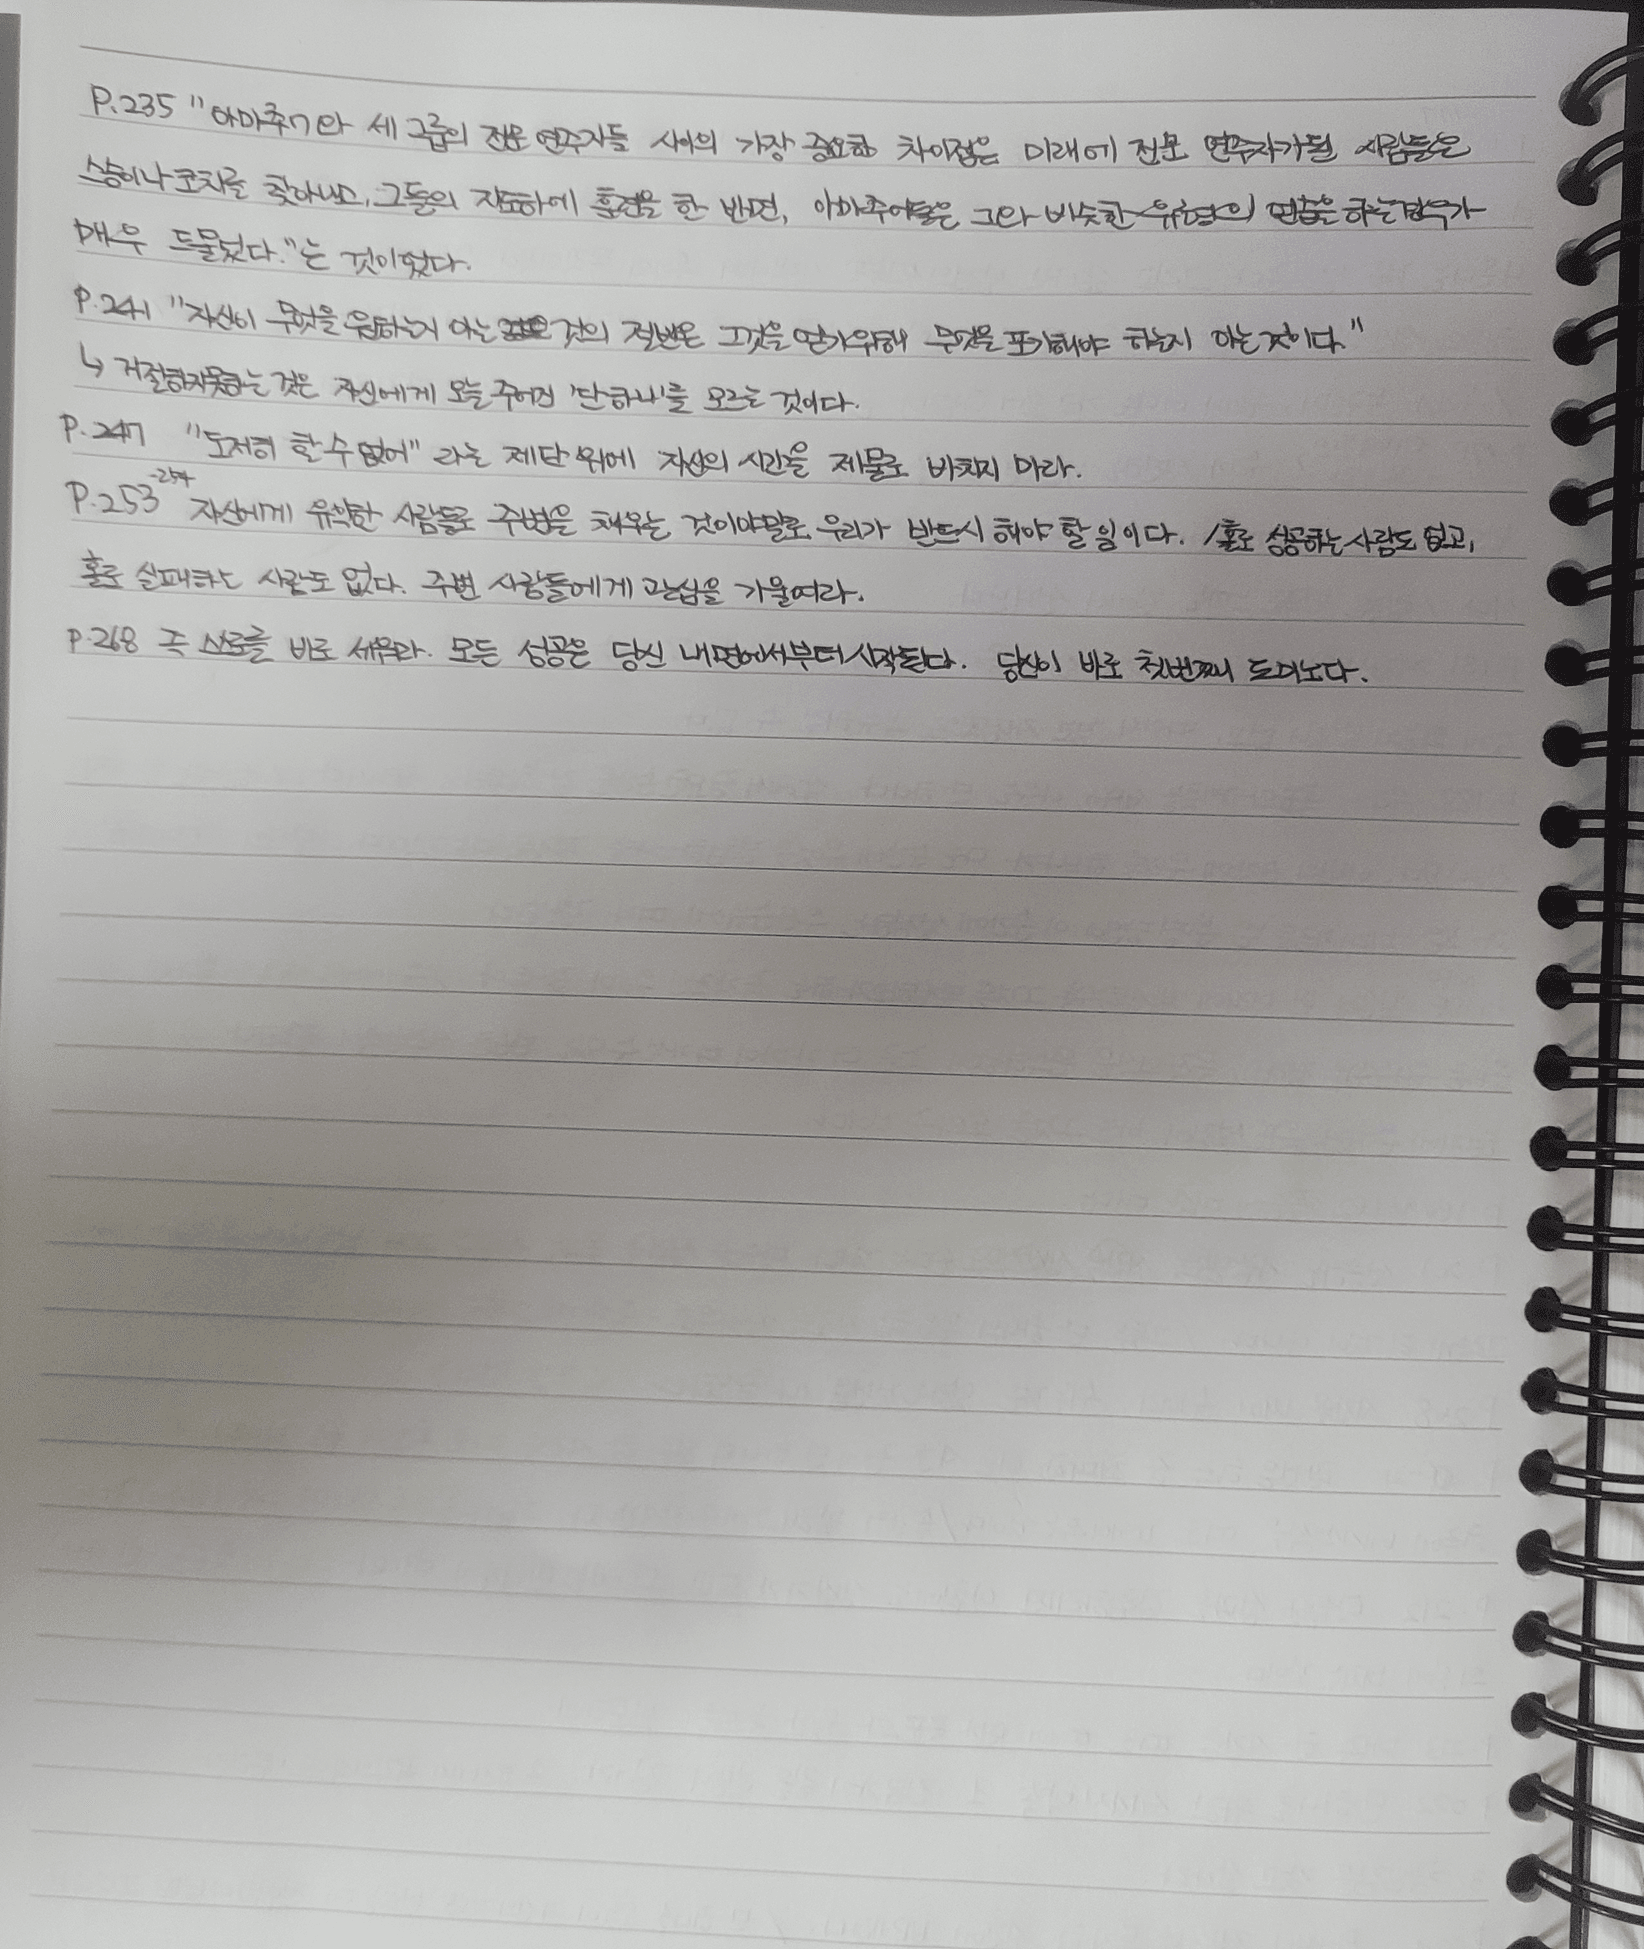 P.235 "아마추어와 세 그룹의 전문 연주자들 사이의 가장 중요한 차이점은 미래에 전문 연주자가 될 사람들은
스승이나 코치를 찾아내고, 그들의 지도하에 훈련을 한 반면, 아마추어들은 그와 비슷한 유형의 연습을 하는 경우가
매우 드물었다."는 것이었다.
P.241 "자신이 무엇을 원하는지 아는 것의 절반은 그것을 얻기 위해 무엇을 포기해야 하는지 아는 것이다."
↳ 거절하지 못하는 것은 자신에게 오늘 주어진 '단 하나'를 모르는 것이다.
P.247 "도저히 할 수 없어" 라는 제단 위에 자신의 시간을 제물로 바치지 마라.
P.253-254 자신에게 유익한 사람들로 주변을 채우는 것이야말로 우리가 반드시 해야 할 일이다. /홀로 성공하는 사람도 없고,
홀로 실패하는 사람도 없다. 주변 사람들에게 관심을 기울여라.
P.268 즉 스스로를 바로 세워라. 모든 성공은 당신 내면에서부터 시작된다. 당신이 바로 첫번째 도미노다.